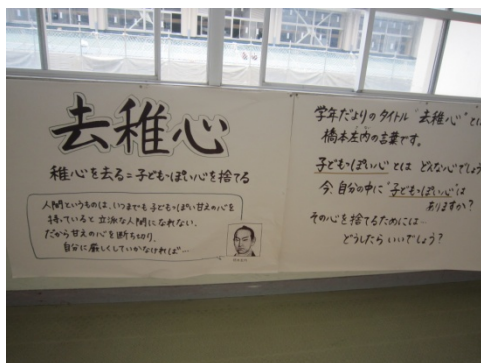 去稚心
稚心を去る=子どもっぽい心を捨てる
人間というものは、いつまでも子どもっぽい甘えの心を
持っていると立派な人間になれない。
だから甘えの心を断ち切り、
自分に厳しくしていかなければ…
学年だよりのタイトル“去稚心”とは
橋本左内の言葉です。
子どもっぽい心とは どんな心でしょう
今、自分の中に“子どもっぽい心”は
ありますか?
その心を捨てるためには…
どうしたらいいでしょう?